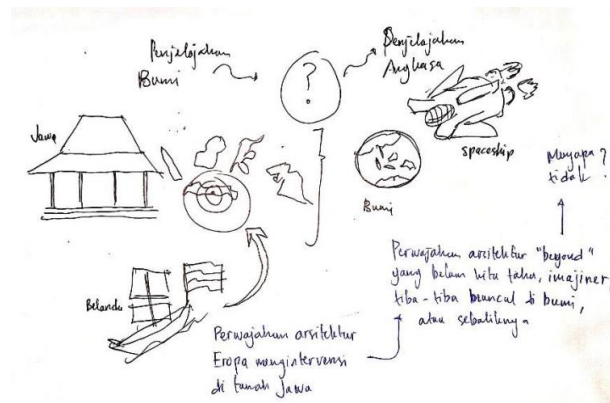 Penjelajahan
Bumi
?
Penjelajahan
Angkasa
Jawa
spaceship
Bumi
Mengapa?
tidak?
Belanda
Perwajahan arsitektur
Eropa mengintervensi
di tanah Jawa
Perwajahan arsitektur "beyond"
yang belum kita tahu, imajiner,
tiba-tiba muncul di bumi,
atau sebaliknya